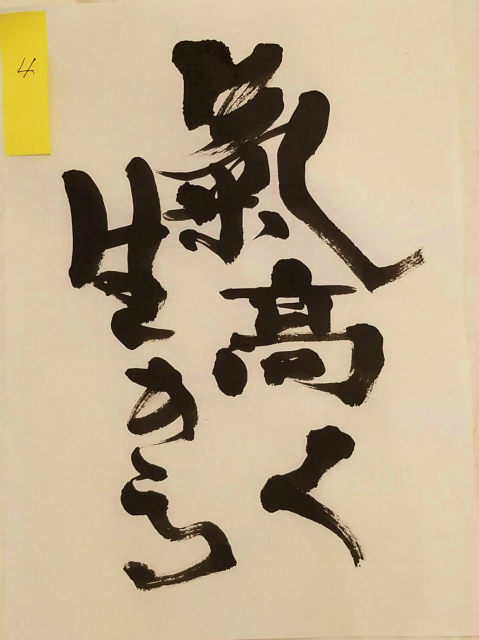 氣高く
生きる
4